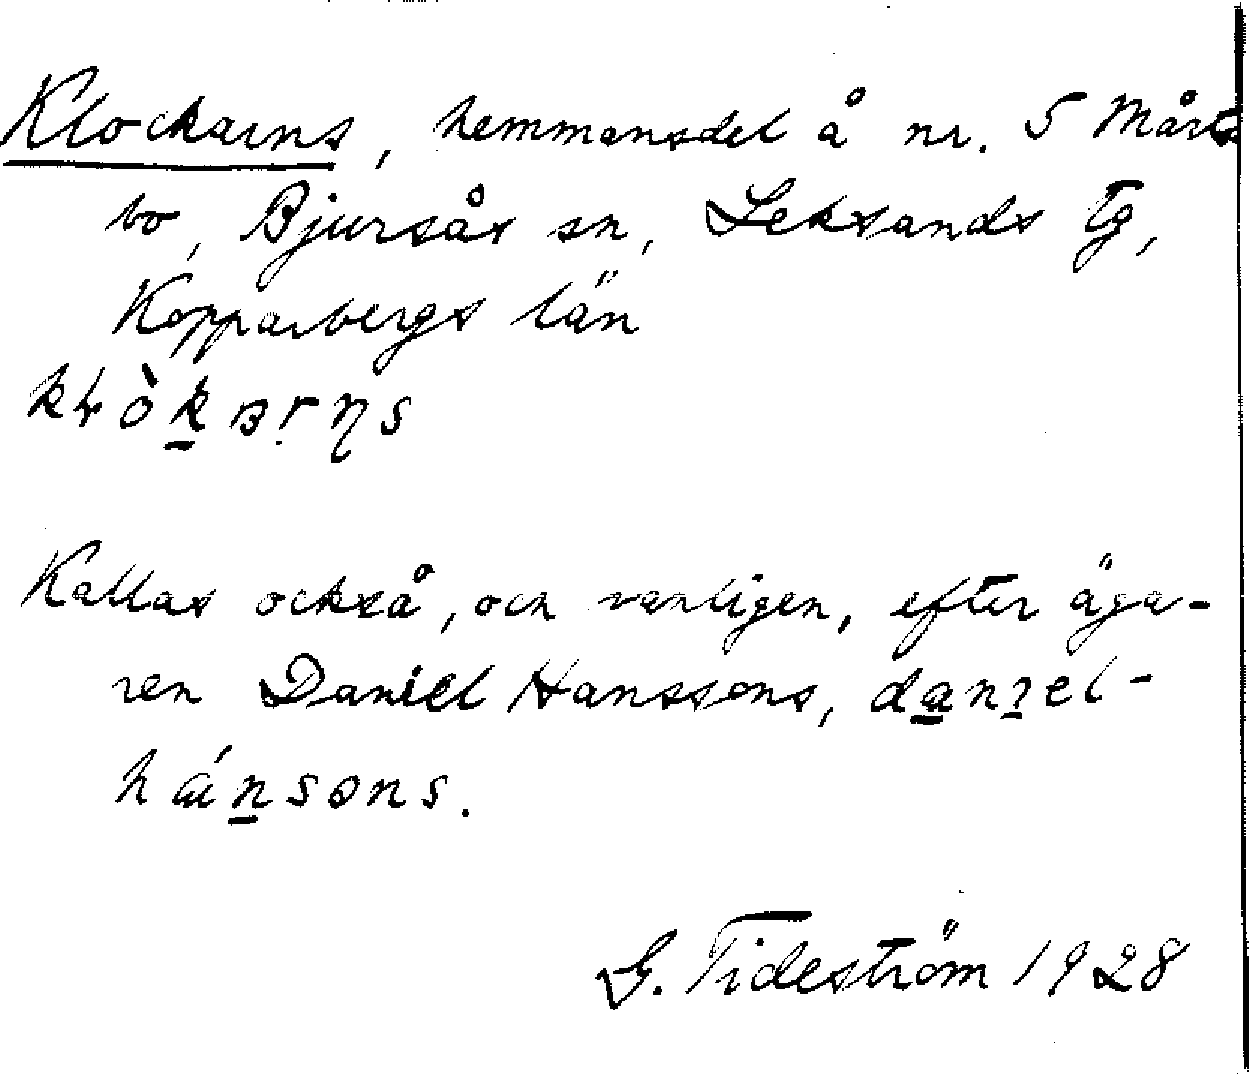 Klockarns, hemmansdel å nr. 5 Mårts
bo, Bjursås sn, Leksands tg,
Kopparbergs län
Kallas också, och vanligen, efter äga-
ren Daniel Hanssons, daniel-
hánsons.
G. Tideström 1928